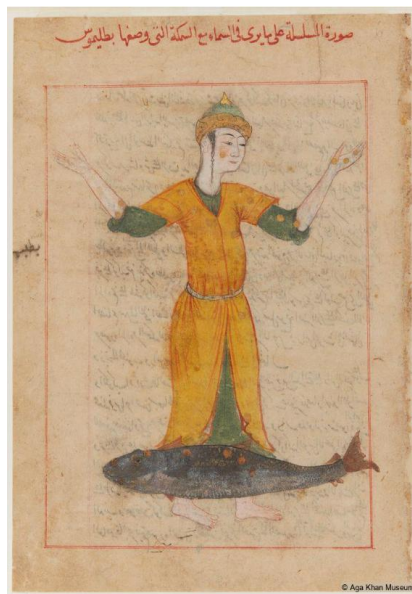 صورة المسلسلة على ما يرى في السماء مع السمكة التي وصفها بطليموس
© Aga Khan Museum